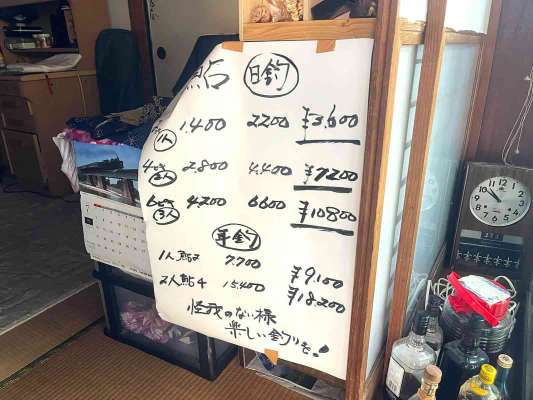 鮎 日釣
1人 1.400 2200 ¥3.600
2人 2.800 4.400 ¥7200
3人 4,200 6600 ¥10800
年釣
1人 鮎2 7.700 ¥9.100
2人 鮎4 15.400 ¥18.200
怪我のない様
楽しい釣りを!